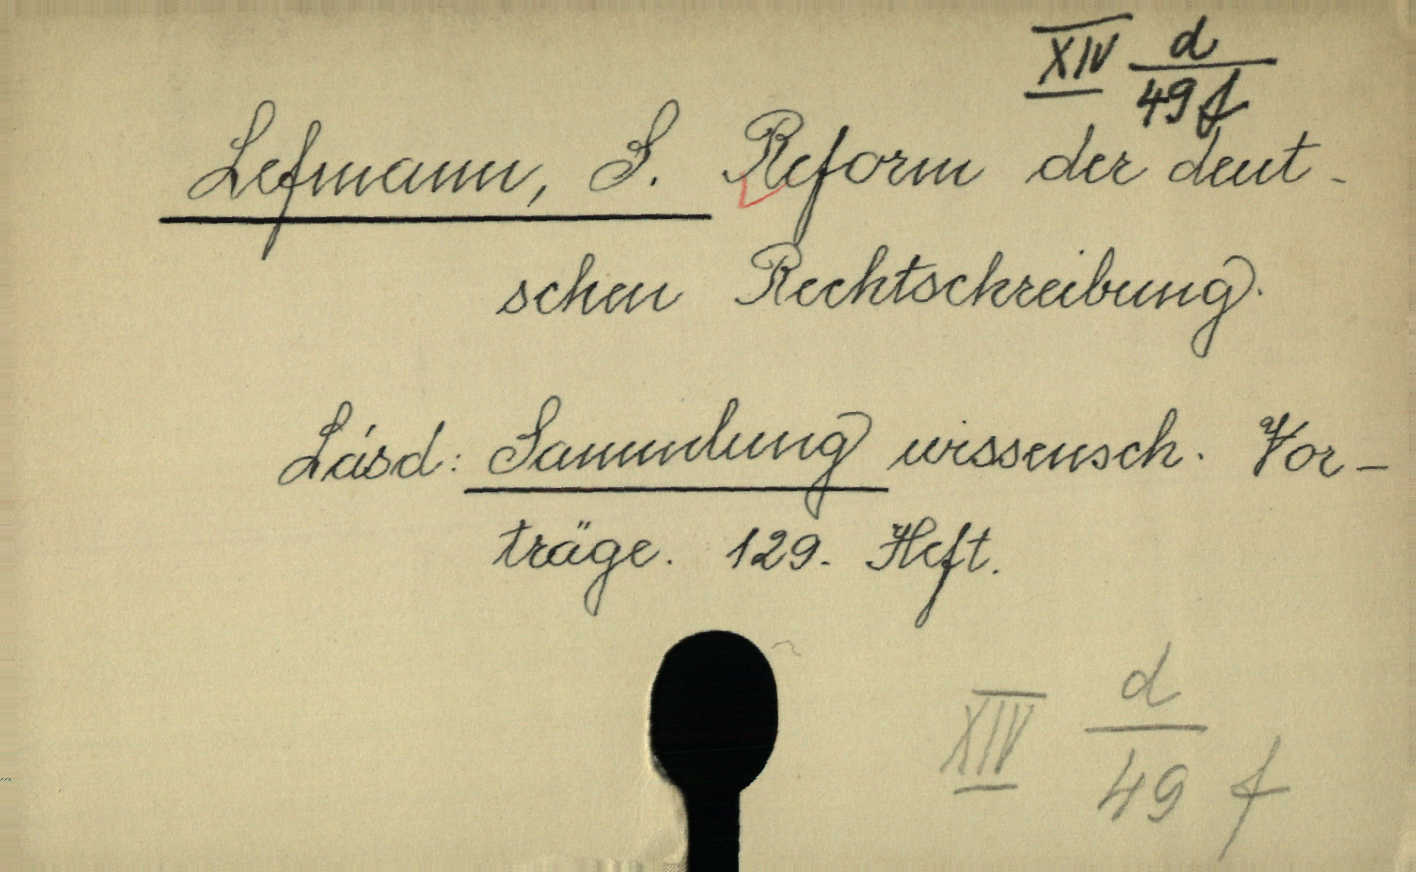 XIV d/49 f
Lefmann, S. Reform der deut-
schen Rechtschreibung.
Lásd: Sammlung wissensch. Vor-
träge. 129. Heft.
XIV d/49 f